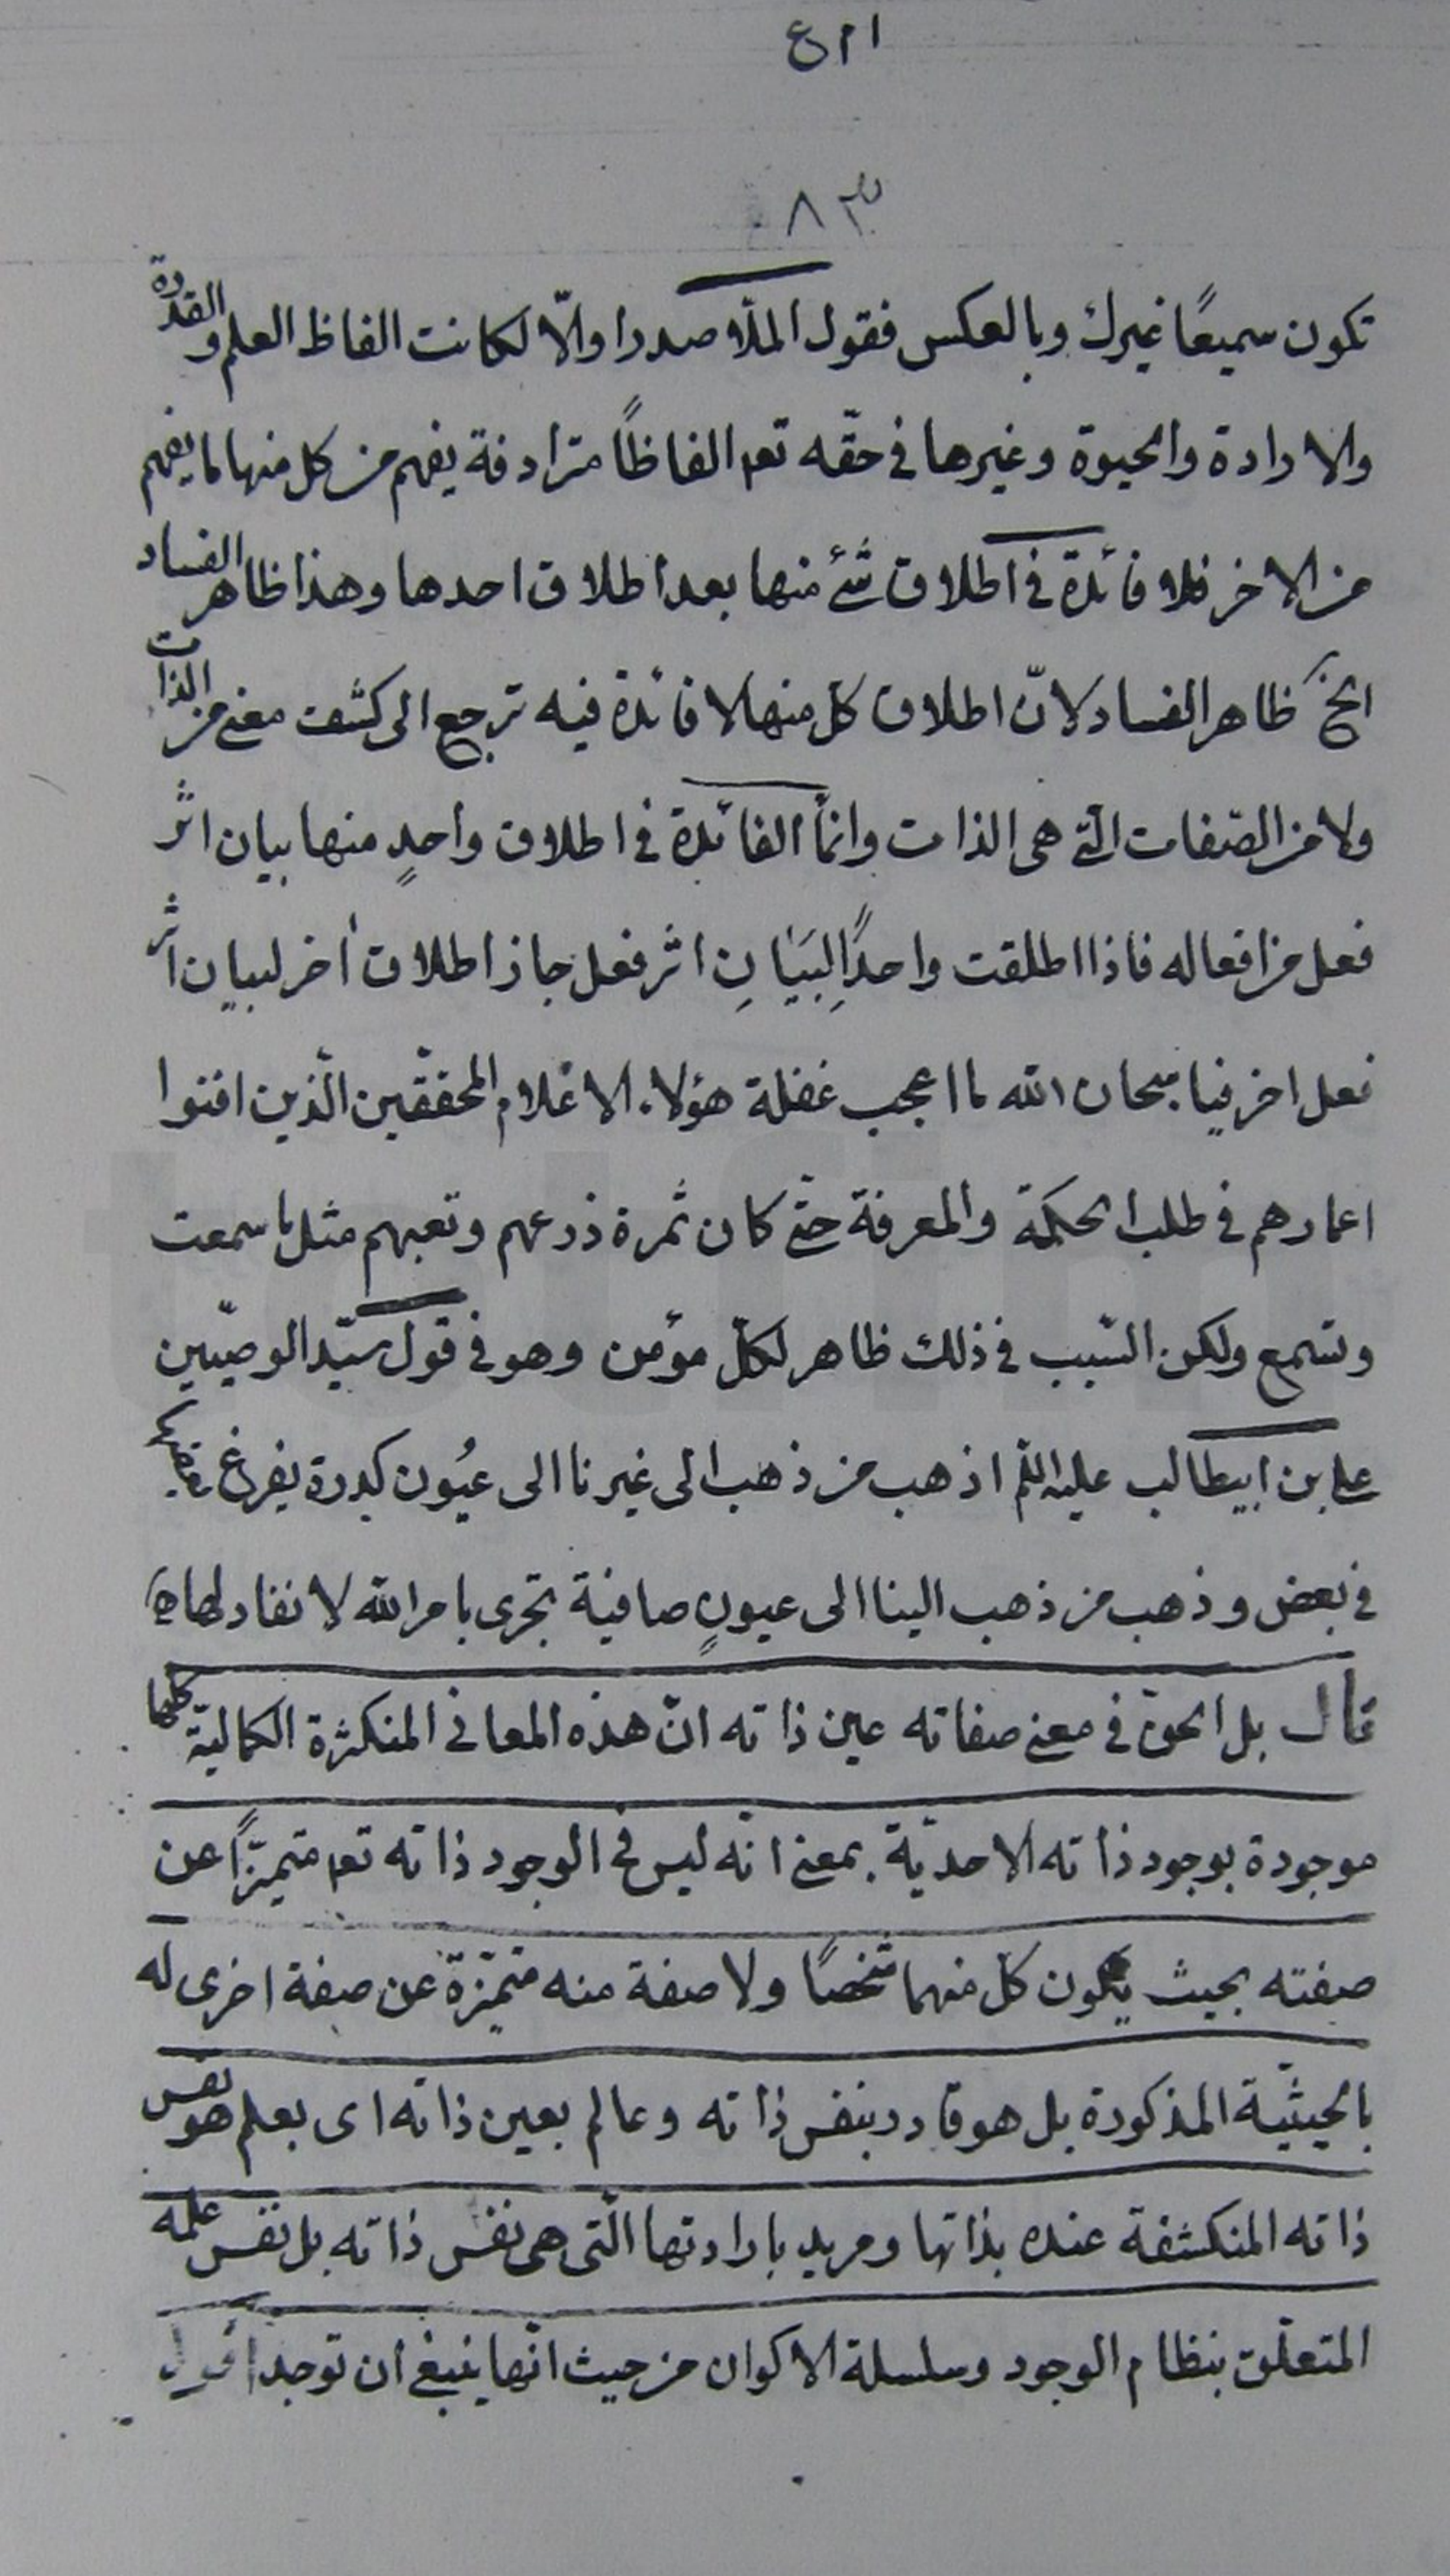 ٨٣
تكون سميعًا غيرك وبالعكس فقول الملّا صدرا والّا لكانت الفاظ العلم والقدرة
والارادة والحيوة وغيرها فى حقّه تعه الفاظًا مترادفة يفهم من كل منها ما يفهم
من الاخر فلا فائدة فى اطلاق شئ منها بعد اطلاق احدها وهذا ظاهر الفساد
الخ ظاهر الفساد لانّ اطلاق كلّ منها لا فائدة فيه ترجع الى كشف معنى من الذات
ولا من الصّفات الّتى هى الذات وانمّا الفائدة فى اطلاق واحدٍ منها بيان اثر
فعل من افعاله فاذا اطلقت واحدًا لِبَيَانِ اثر فعل جاز اطلاق أخر لبيان اثر
فعل اخر فيا سبحان الله ما اعجب غفلة هؤلاء الاعلام المحققّين الّذين افنوا
اعمارهم فى طلب الحكمة والمعرفة حتّى كان ثمرة زرعهم وتعبهم مثل ما سمعت
وتسمع ولكن السّبب فى ذلك ظاهر لكلّ مؤمن وهو فى قول سيّد الوصيّين
على بن ابيطالب عليه السّلم اذ هب من ذهب الى غيرنا الى عيُون كدرة يفرغ بعضها
فى بعض وذهب من ذهب الينا الى عيونٍ صافية تجرى بامر الله لا نفاد لها
قال بل الحقّ فى معنى صفاته عين ذاته انّ هذه المعانى المتكثرة الكماليّة كلها
موجودة بوجود ذاته الاحديّة بمعنى انّه ليس فى الوجود ذاته تعه متميّزًا عن
صفته بحيث يكون كلّ منهما شخصًا ولا صفة منه متميّزة عن صفة اخرى له
بالحيثيّة المذكورة بل هو قادر بنفس ذاته وعالم بعين ذاته اى بعلم هو نفس
ذاته المنكشفة عنده بذاتها ومريد بارادتها الّتى هى نفس ذاته بل نفس علمه
المتعلّق بنظام الوجود وسلسلة الاكوان من حيث انّها ينبغى ان توجد اقول